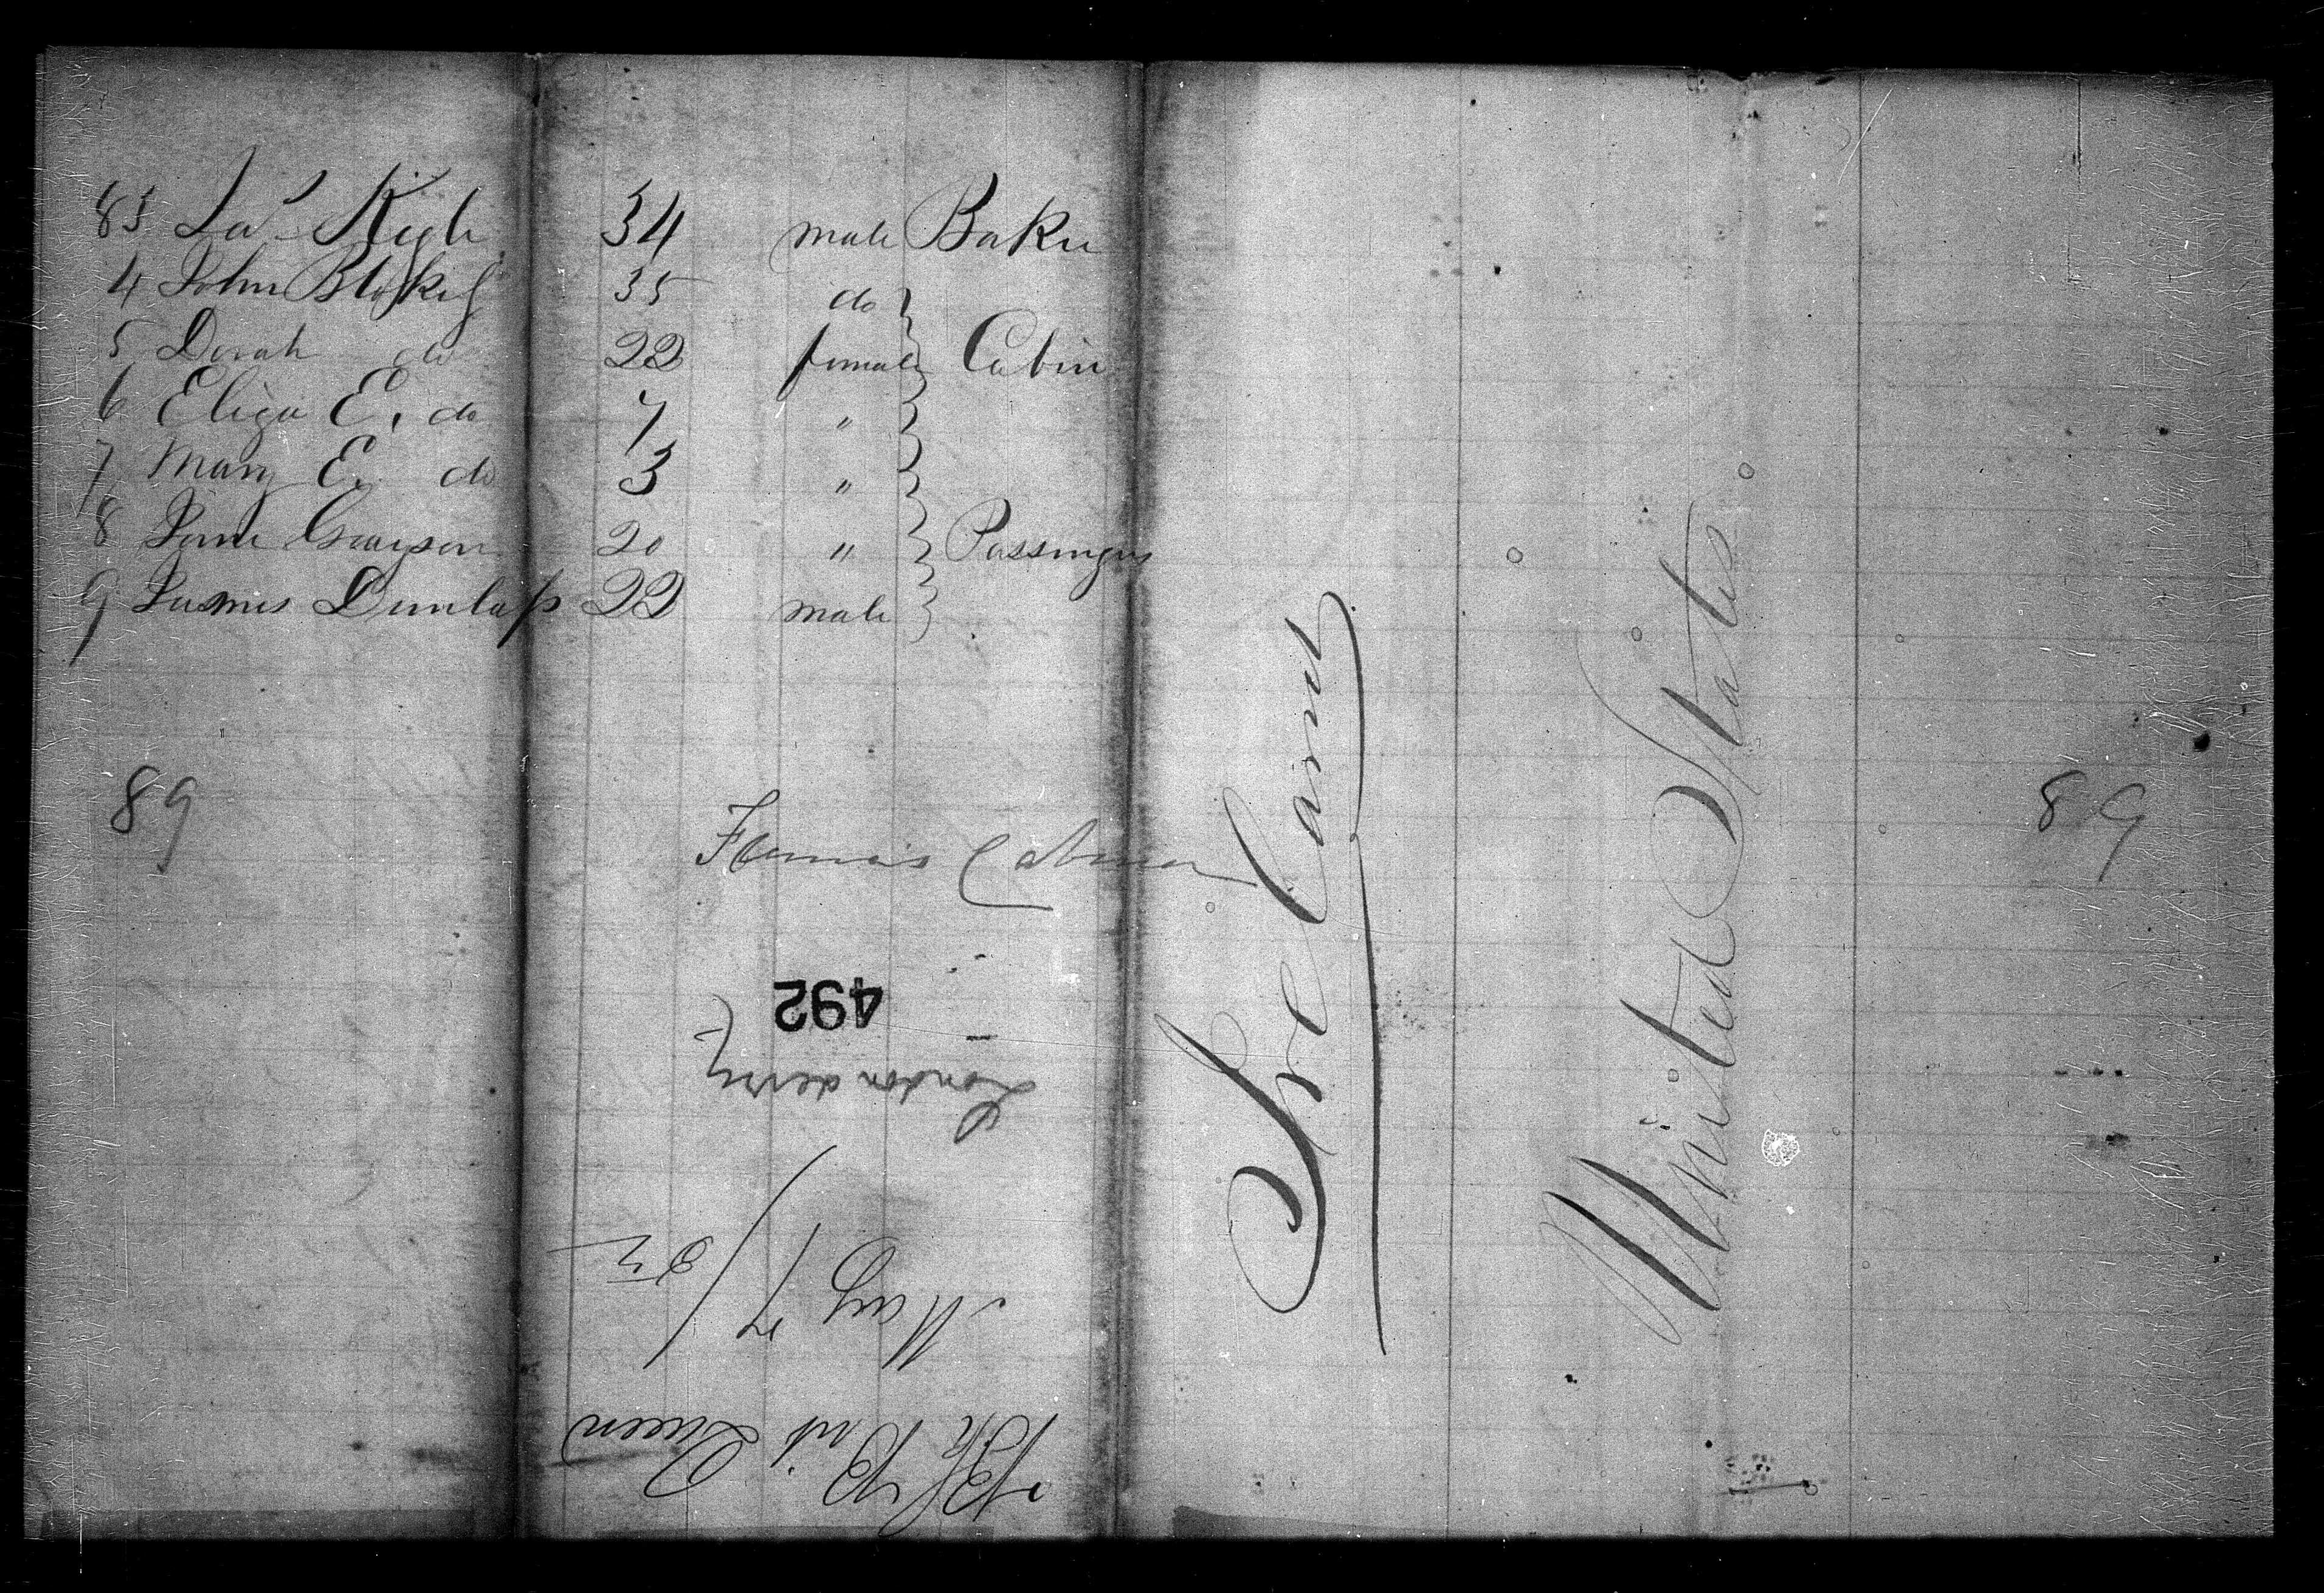 83 Jas Kyle 34 male Baker
4 John Blakely 35 do
5 Dorah do 22 female Cabin
6 Eliza E. do 7 "
7 Mary E. do 3 "
8 Jane Grayson 20 " Passengers
9 James Dunlap 22 male
89
89
492
Londonderry
May 7/53
Bk Brit Queen
Ireland
United States